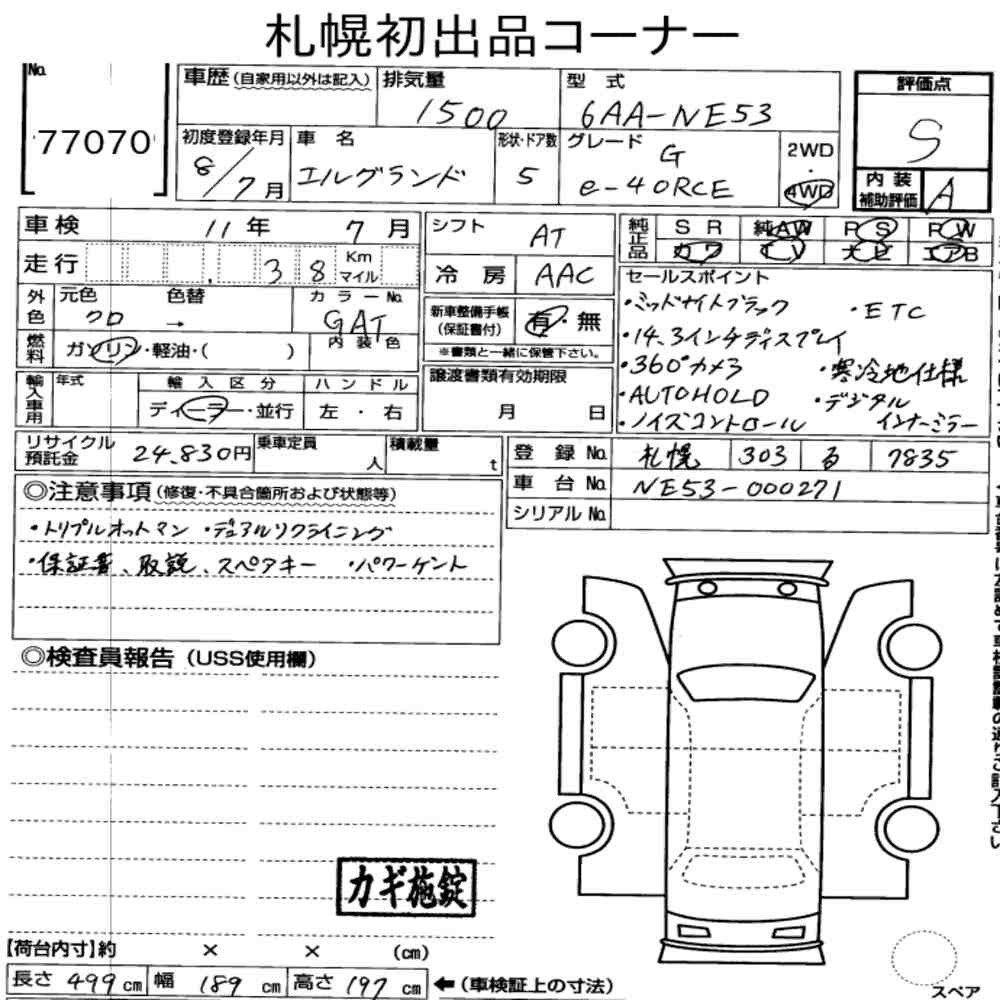 札幌初出品コーナー
No.
77070
車歴(自家用以外は記入)
排気量
1500
型式
6AA-NE53
評価点
S
初度登録年月
8/7月
車名
エルグランド
形状・ドア数
5
グレード
G
e-4ORCE
2WD
・
4WD
内装
補助評価
A
車検 11年 7月
走行 38 Km マイル
外色
元色 色替
クロ →
カラーNo.
GAT
燃料
ガソリン・軽油・( )
内装色
輸入車用
年式
輸入区分
ディーラー・並行
ハンドル
左・右
シフト AT
冷房 AAC
新車整備手帳
(保証書付)
有・無
※書類と一緒に保管下さい。
譲渡書類有効期限
月 日
純正品
SR 純AW PS PW
カワ TV ナビ エアB
セールスポイント
・ミッドナイトブラック ・ETC
・14.3インチディスプレイ
・360°カメラ ・寒冷地仕様
・AUTOHOLD ・デジタル
・ノイズコントロール インナーミラー
リサイクル
預託金
24,830円
乗車定員
人
積載量
t
登録No. 札幌 303 る 7835
車台No. NE53-000271
シリアルNo.
◎注意事項(修復・不具合箇所および状態等)
・トリプルオットマン ・デュアルリクライニング
・保証書、取説、スペアキー ・パワーゲント
◎検査員報告(USS使用欄)
カギ施錠
【荷台内寸】約 × × (cm)
長さ 499cm 幅 189cm 高さ 197cm ←(車検証上の寸法)
スペア